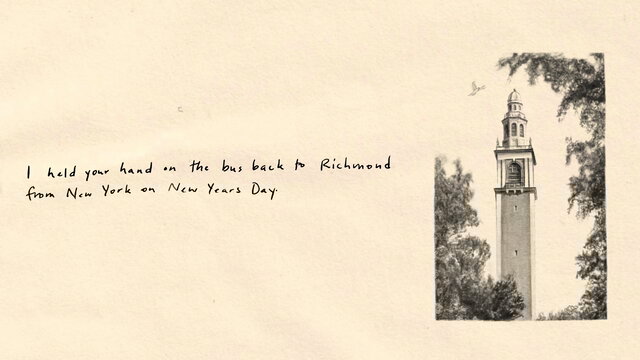 I held your hand on the bus back to Richmond
from New York on New Years Day.